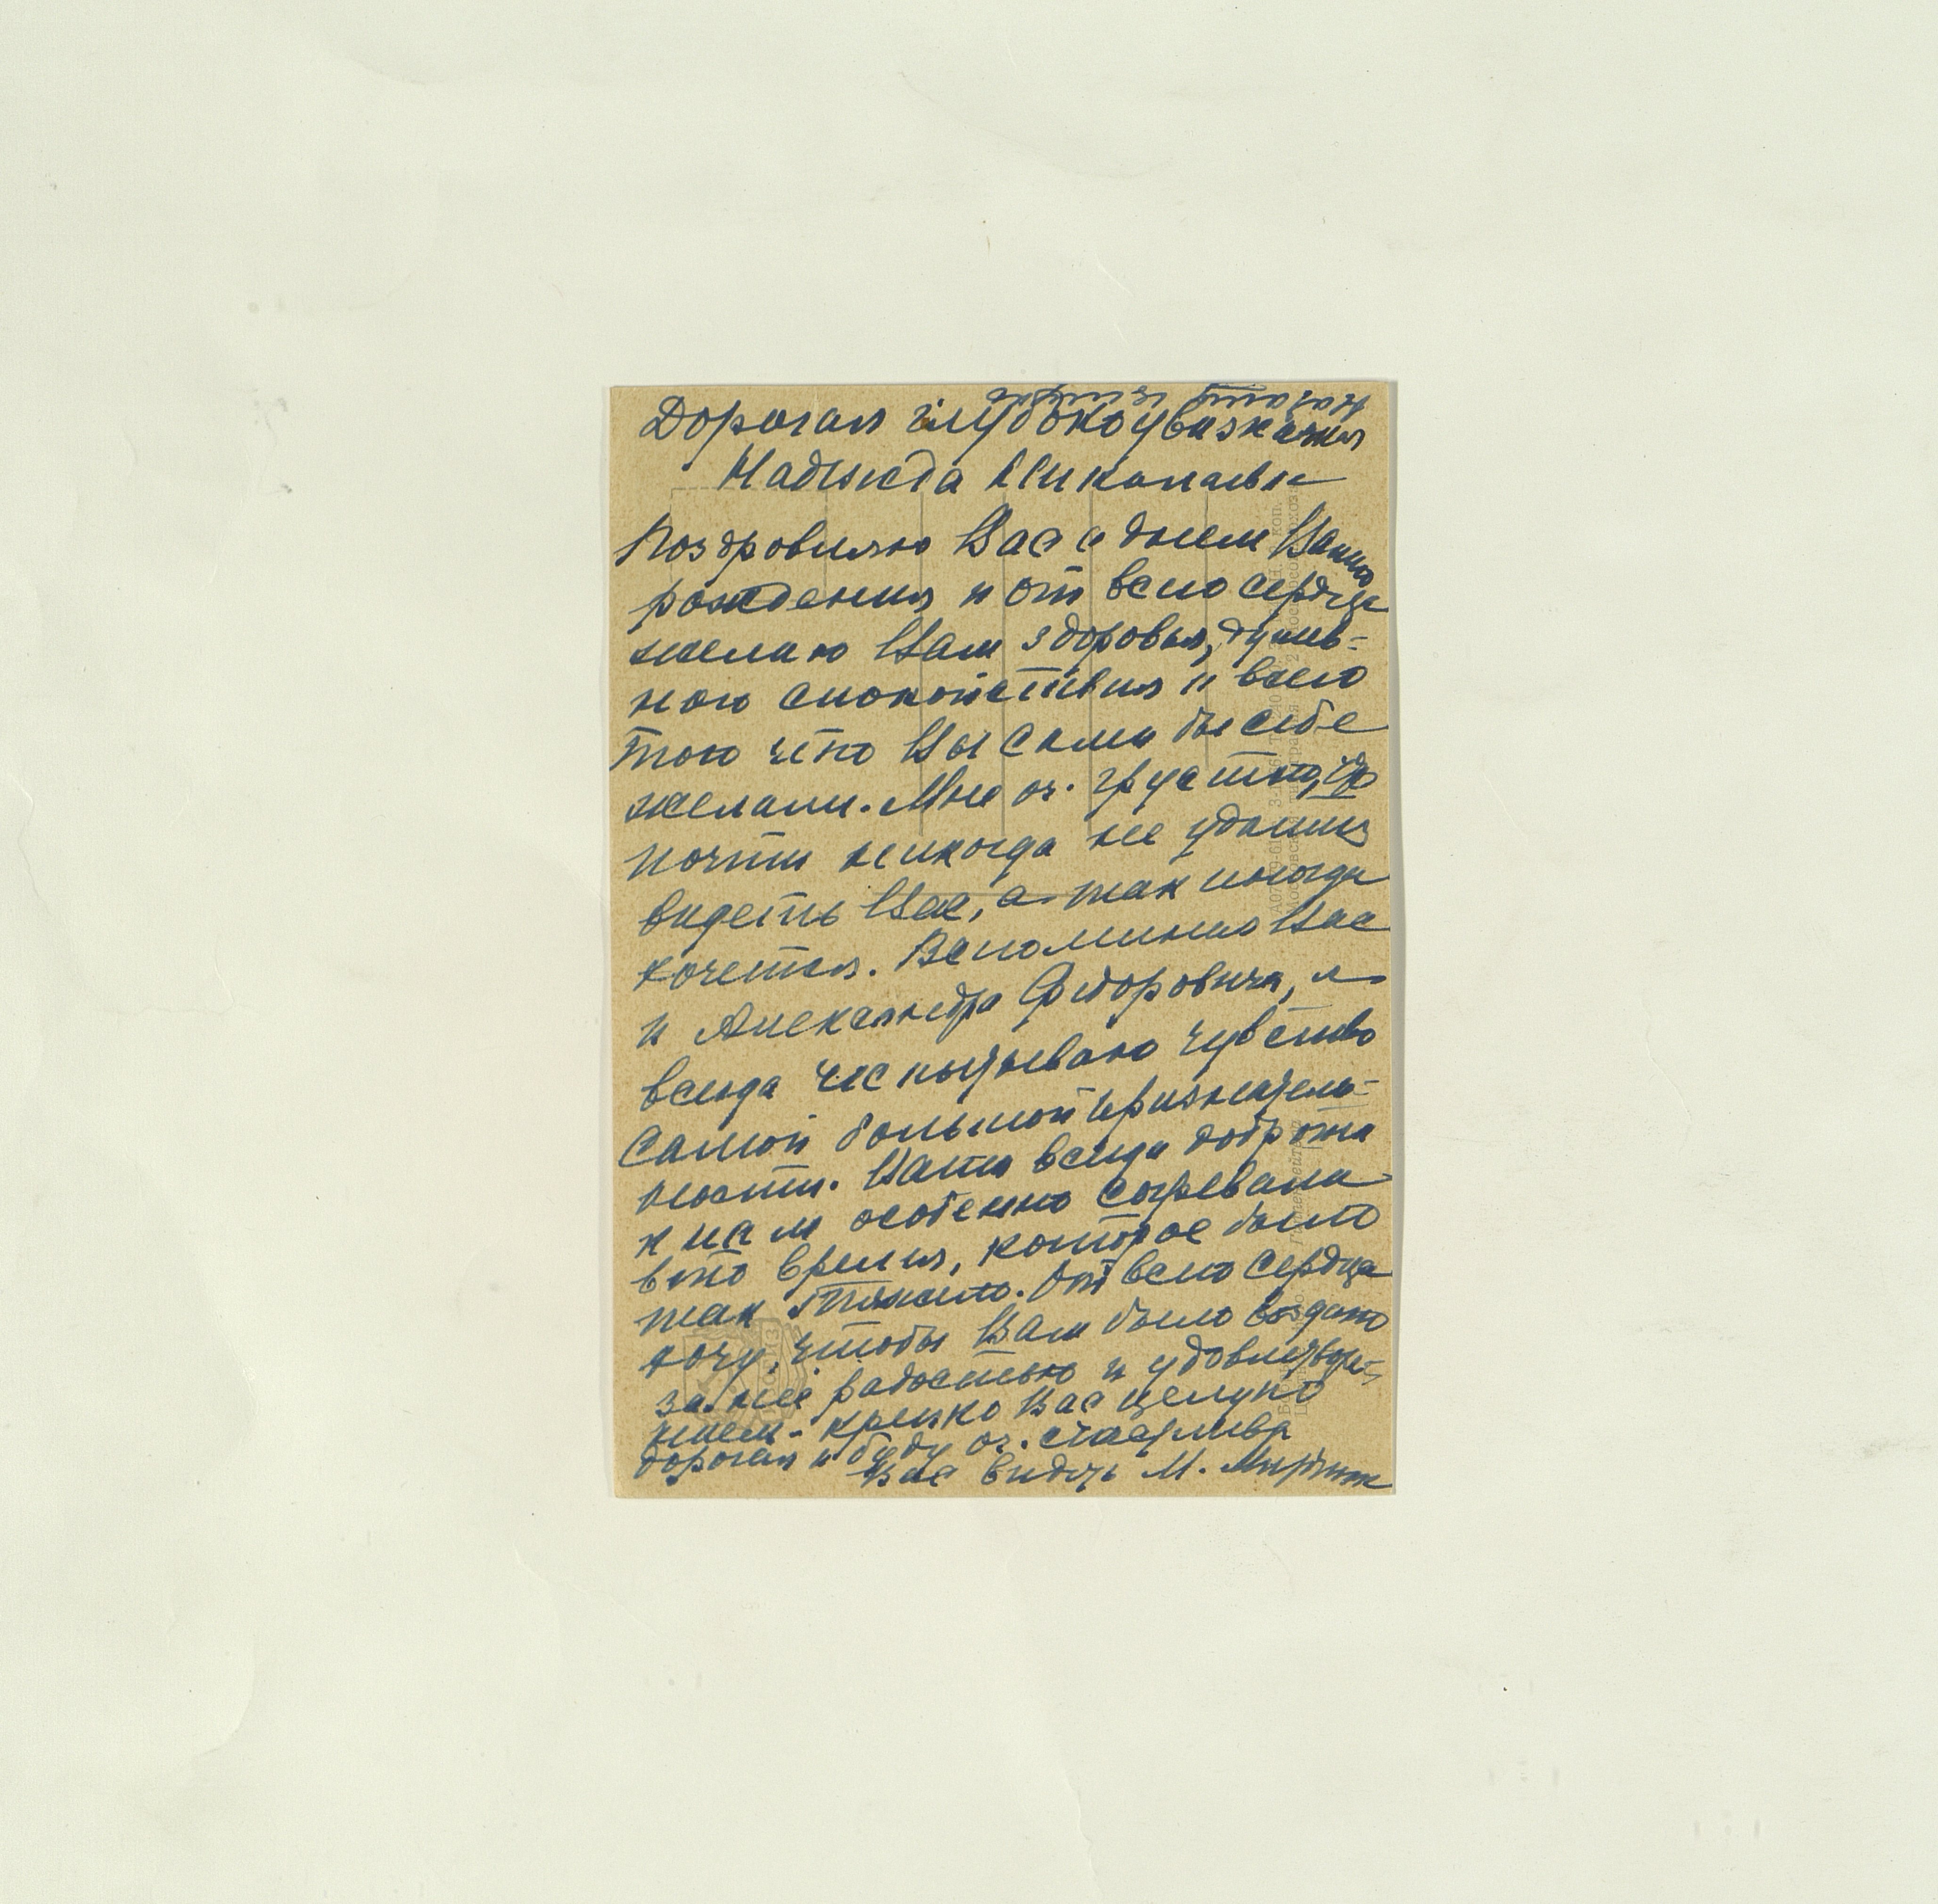 Дорогая глубокоуважаемая
Надежда Николаевна
Поздравляю Вас с днем Вашего
рождения и от всего сердца
желаю Вам здоровья, душев-
ного спокойствия и всего
того что Вы сами бы себе
желали. Мне оч. грустно, что
почти никогда не удается
видеть Вас, а так иногда
хочется. Вспоминаю Вас
и Александра Федоровича, я
всегда испытываю чувство
самой большой признатель-
ности. Ваша всегда доброта
к нам особенно согревала
в то время, которое было
так тяжело. От всего сердца
хочу, чтобы Вам было воздано
за нее радостью и удовлетворе-
нием. Крепко Вас целую
дорогая и буду оч. счастлива
Вас видеть М.